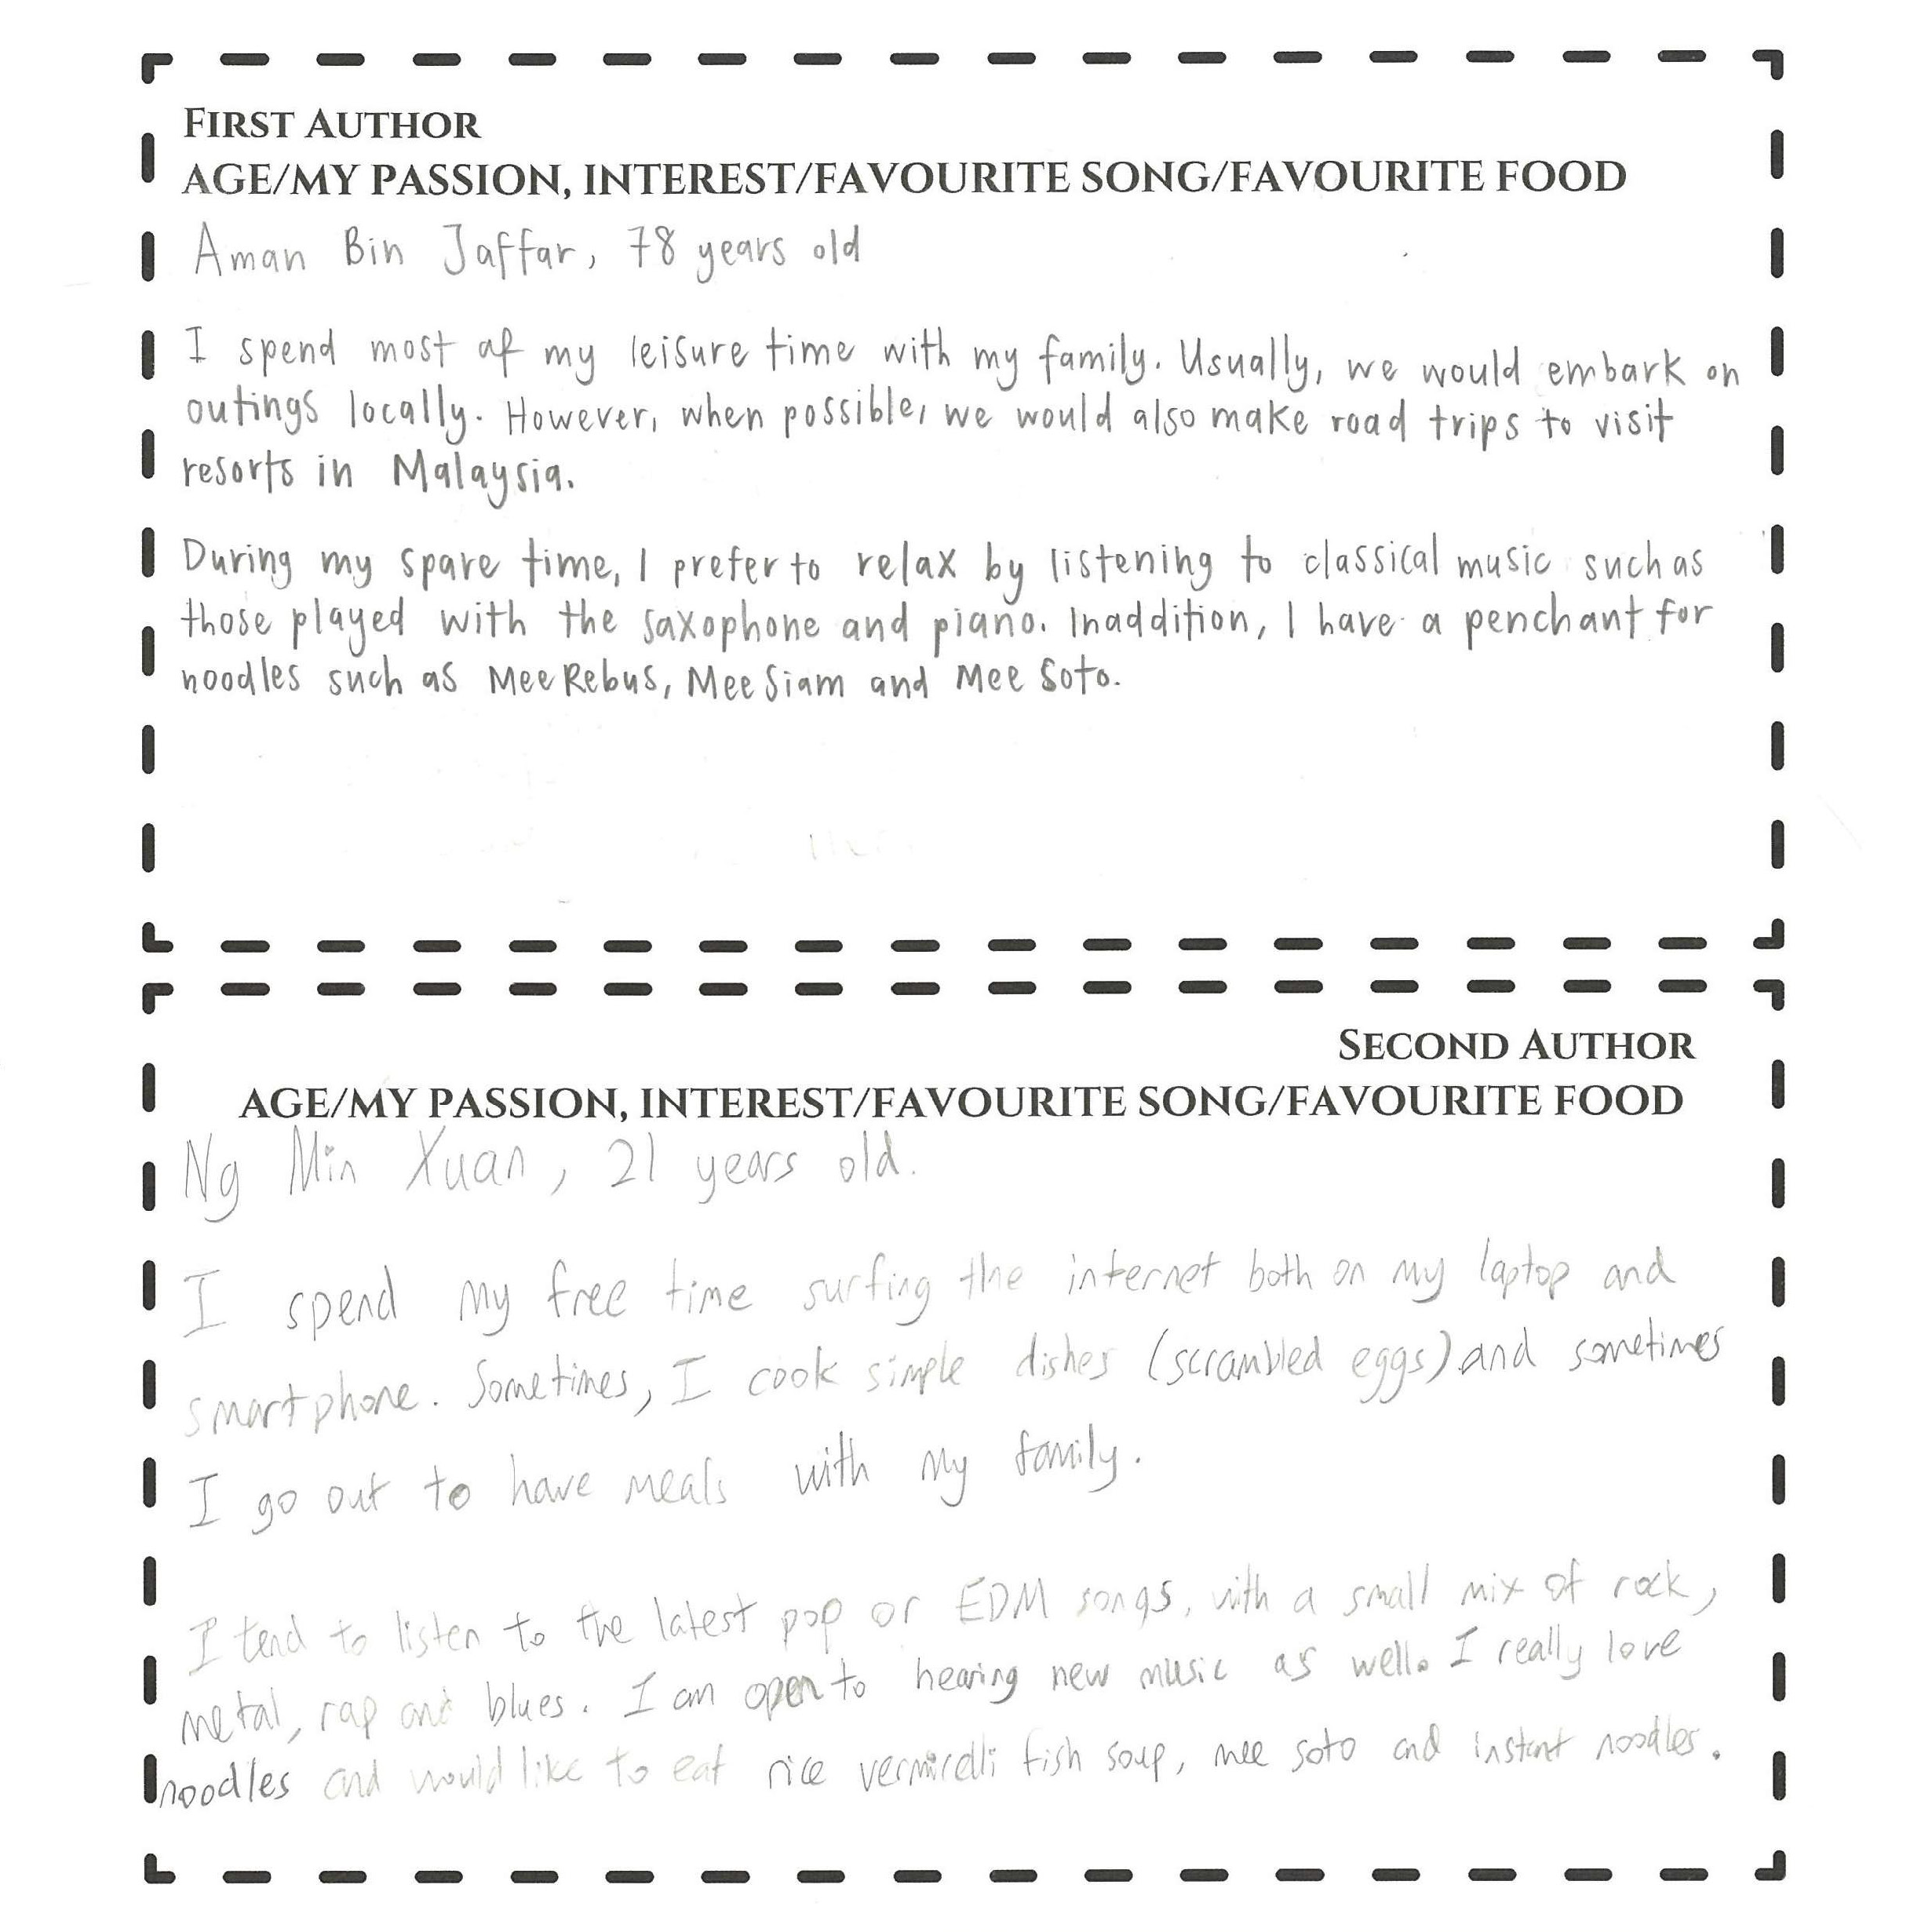 FIRST AUTHOR
AGE/MY PASSION, INTEREST/FAVOURITE SONG/FAVOURITE FOOD
Aman Bin Jaffar, 78 years old
I spend most of my leisure time with my family. Usually, we would embark on
outings locally. However, when possible, we would also make road trips to visit
resorts in Malaysia.
During my spare time, I prefer to relax by listening to classical music such as
those played with the saxophone and piano. Inaddition, I have a penchant for
noodles such as Mee Rebus, Mee Siam and Mee Soto.
SECOND AUTHOR
AGE/MY PASSION, INTEREST/FAVOURITE SONG/FAVOURITE FOOD
Ng Min Xuan, 21 years old.
I spend my free time surfing the internet both on my laptop and
smartphone. Sometimes, I cook simple dishes (scrambled eggs) and sometimes
I go out to have meals with my family.
I tend to listen to the latest pop or EDM songs, with a small mix of rock,
metal, rap and blues. I am open to hearing new music as well. I really love
noodles and would like to eat rice vermicelli fish soup, mee soto and instant noodles.